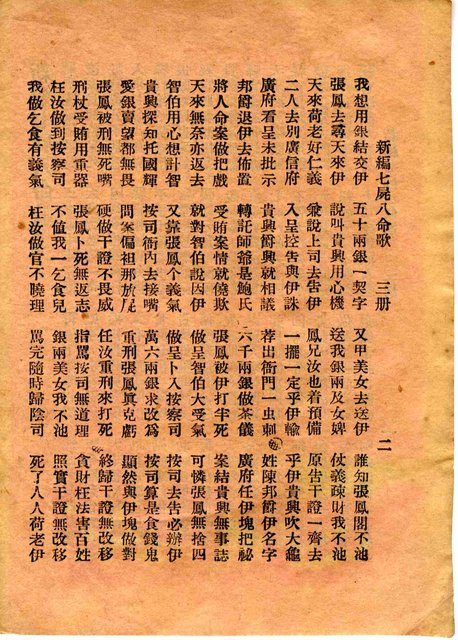 新編七屍八命歌　三册　二
我想用銀結交伊　五十兩銀一契字　又甲美女去送伊　誰知張鳳閣不池
張鳳去尋天來伊　說叫貴興用心機　送我銀兩及女婢　仗義疎財我不池
天來荷老好仁義　兼說上司去告伊　鳳兄汝也着預備　原告干證一齊去
二人去別廣信府　入呈控告與伊誅　一擺一定乎伊輸　乎伊貴興吹大龜
廣府看呈未批示　貴興爵興就相議　荐出衙門一虫刺　姓陳邦爵伊名字
邦爵退伊去佈置　轉託師爺是鮑氏　六千兩銀做茶儀　廣府任伊塊把祕
將人命案做把戲　受賄案情就僥欺　張鳳被伊打半死　案結貴興無事誌
天來無奈亦返去　就對智伯說因伊　做呈智伯大受氣　可憐張鳳無捨四
智伯用心想計智　又靠張鳳个義氣　做呈卜入按察司　按司去告必辦伊
貴興探知托國輝　按司衙內去接嘴　萬六兩銀求改爲　按司算是食錢鬼
愛銀賣望都無畏　問案偏袒那放屁　重刑張鳳眞克虧　顯然與伊塊做對
張鳳被刑無死嘴　硬做干證不畏威　任汝重刑來打死　終歸干證無改移
刑杖受賄用重器　張鳳卜死無返志　指罵按司無道理　貪財枉法害百姓
枉汝做到按察司　不值我一乞食兒　銀兩美女我不池　照實干證無改移
我做乞食有義氣　枉汝做官不曉理　罵完隨時歸陰司　死了人人荷老伊